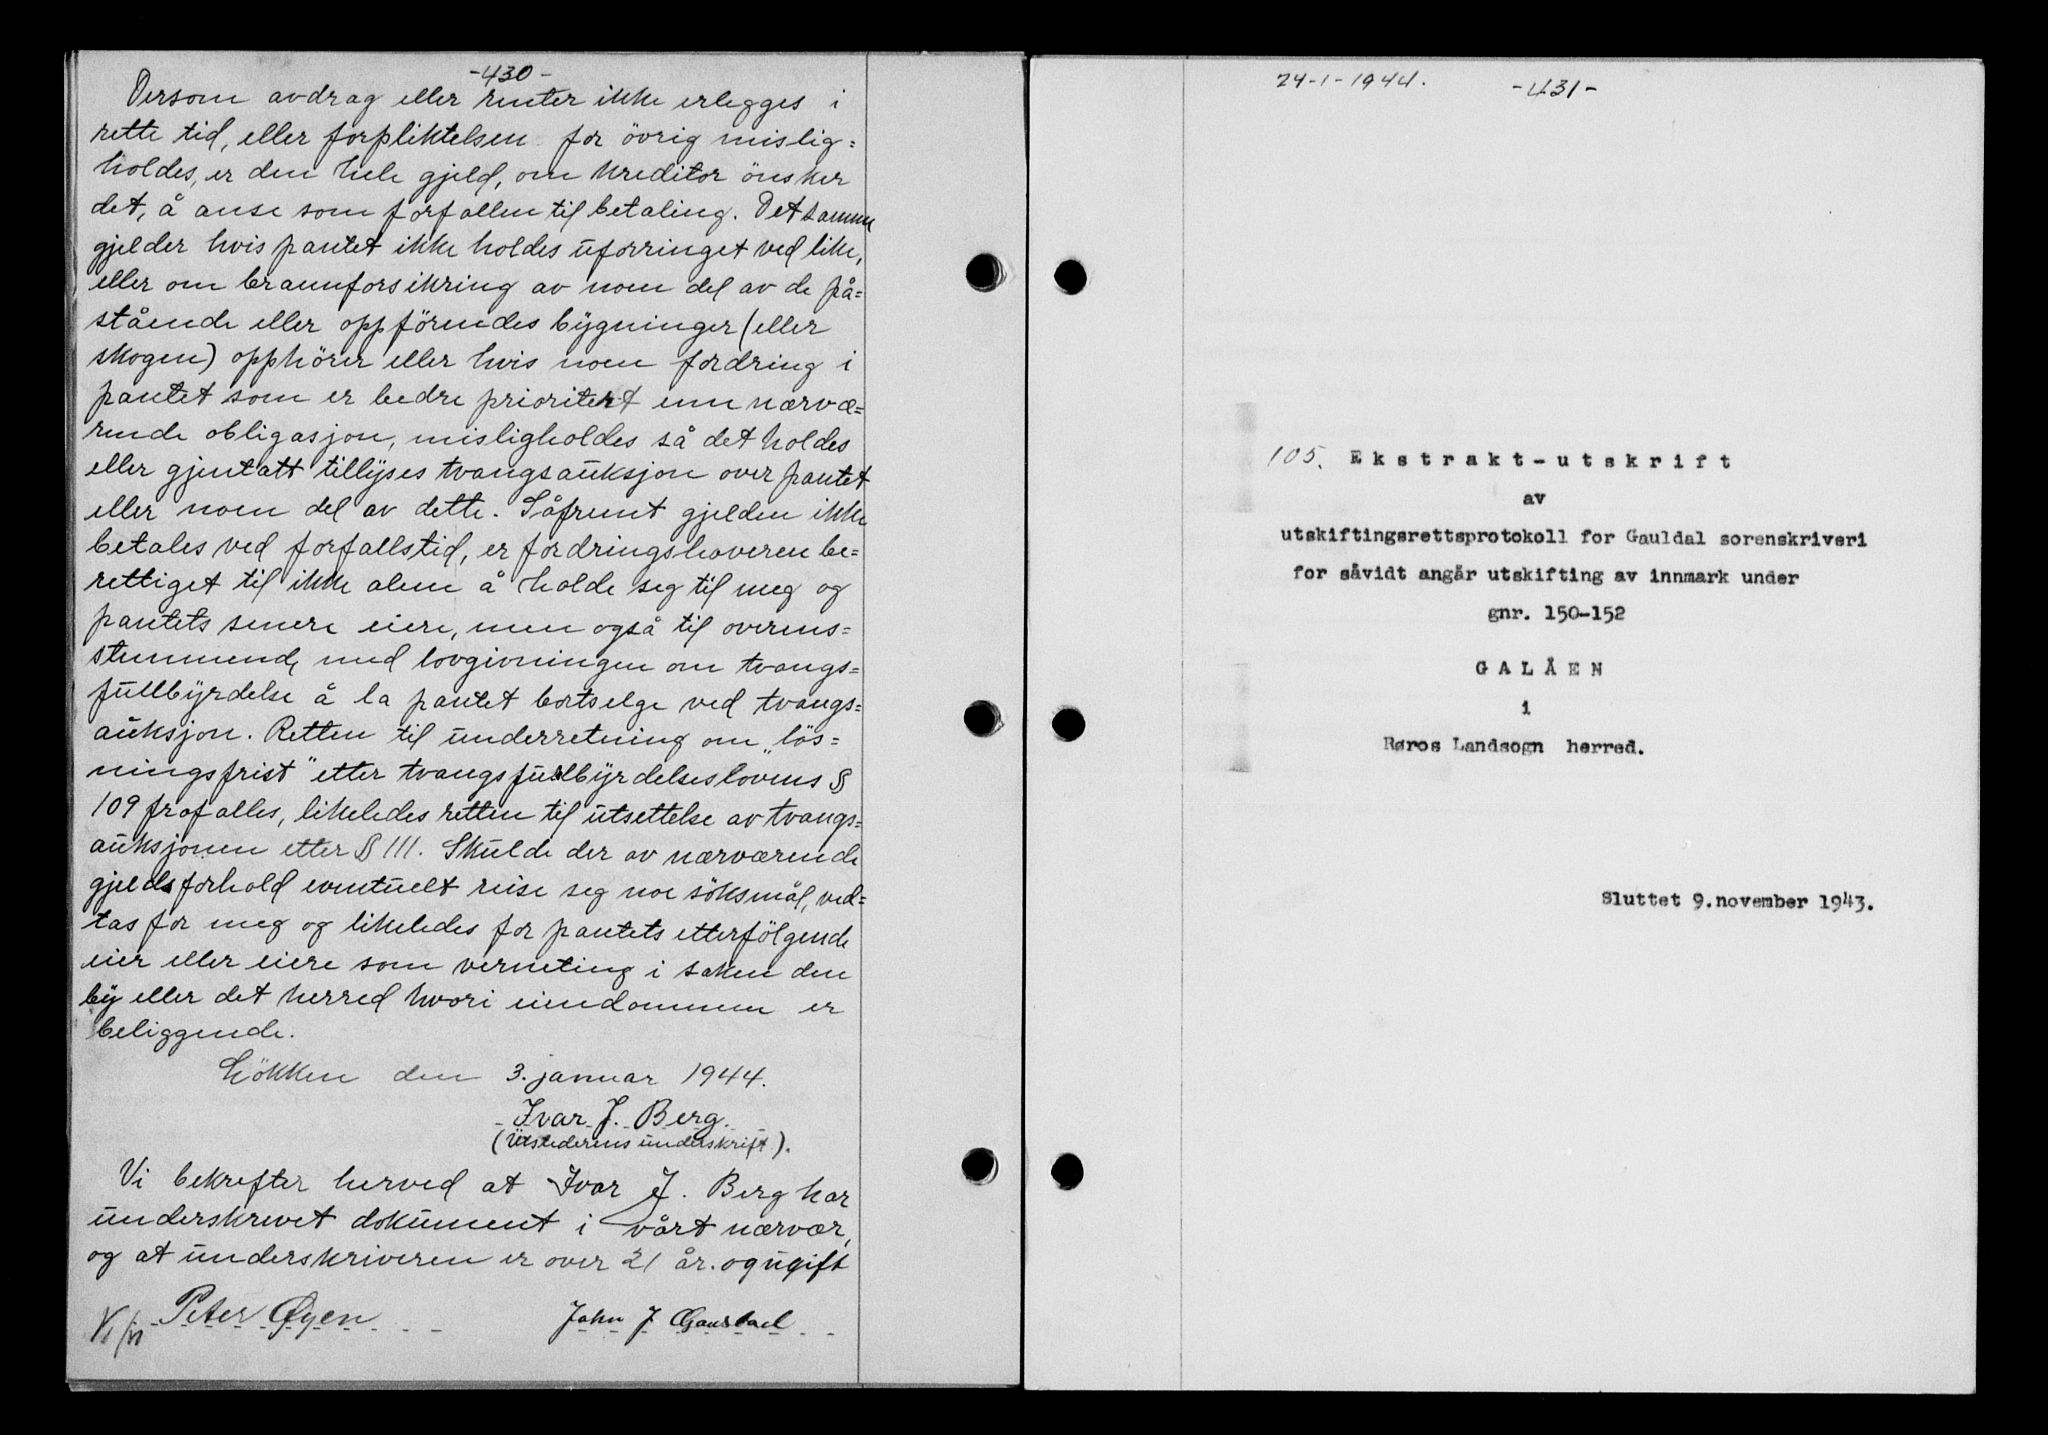 -430-
Dersom avdrag eller renter ikke erlegges i
rette tid, eller forpliktelsen for övrig mislig=
holdes, er den hele gjeld, om kreditor önsker
det, å anse som forfallen til betaling. Det samme
gjelder hvis pantet ikke holdes uforringet ved like,
eller om brannforsikring av noen del av de på=
stående eller oppförendes bygninger (eller
skogen) opphörer eller hvis noen fordring i
pantet som er bedre prioritert enn nærvæ=
rende obligasjon, misligholdes så det holdes
eller gjentatt tillyses tvangsauksjon over pantet
eller noen del av dette. Såfremt gjelden ikke
betales ved forfallstid, er fordringshaveren be=
rettiget til ikke alene å holde seg til meg og
pantets senere eiere, men også til overens=
stemmende med lovgivningen om tvangs=
fullbyrdelse å la pantet bortselge ved tvangs=
auksjon. Retten til underretning om „lös=
ningsfrist" etter tvangsfullbyrdelseslovens §
109 frafalles, likeledes retten til utsettelse av tvangs=
auksjonen etter § 111. Skulde der av nærværende
gjeldsforhold eventuelt reise seg noe söksmål, ved=
tas for meg og likeledes for pantets etterfölgende
eier eller eiere som verneting i saken den
by eller det herred hvori eiendommen er
beliggende.
Lökken den 3. januar 1944.
Ivar J. Berg.
(Utstederens underskrift).
Vi bekrefter herved at Ivar J. Berg har
underskrevet dokument i vårt nærvær,
og at underskriveren er over 21 år. og ugift
Peter Øyen John J Gaustad
24-1-1944. -431-
105. Ekstrakt-utskrift
av
utskiftingsrettsprotokoll for Gauldal sorenskriveri
for såvidt angår utskifting av innmark under
gnr. 150-152
GALÅEN
i
Røros Landsogn herred.
Sluttet 9.november 1943.